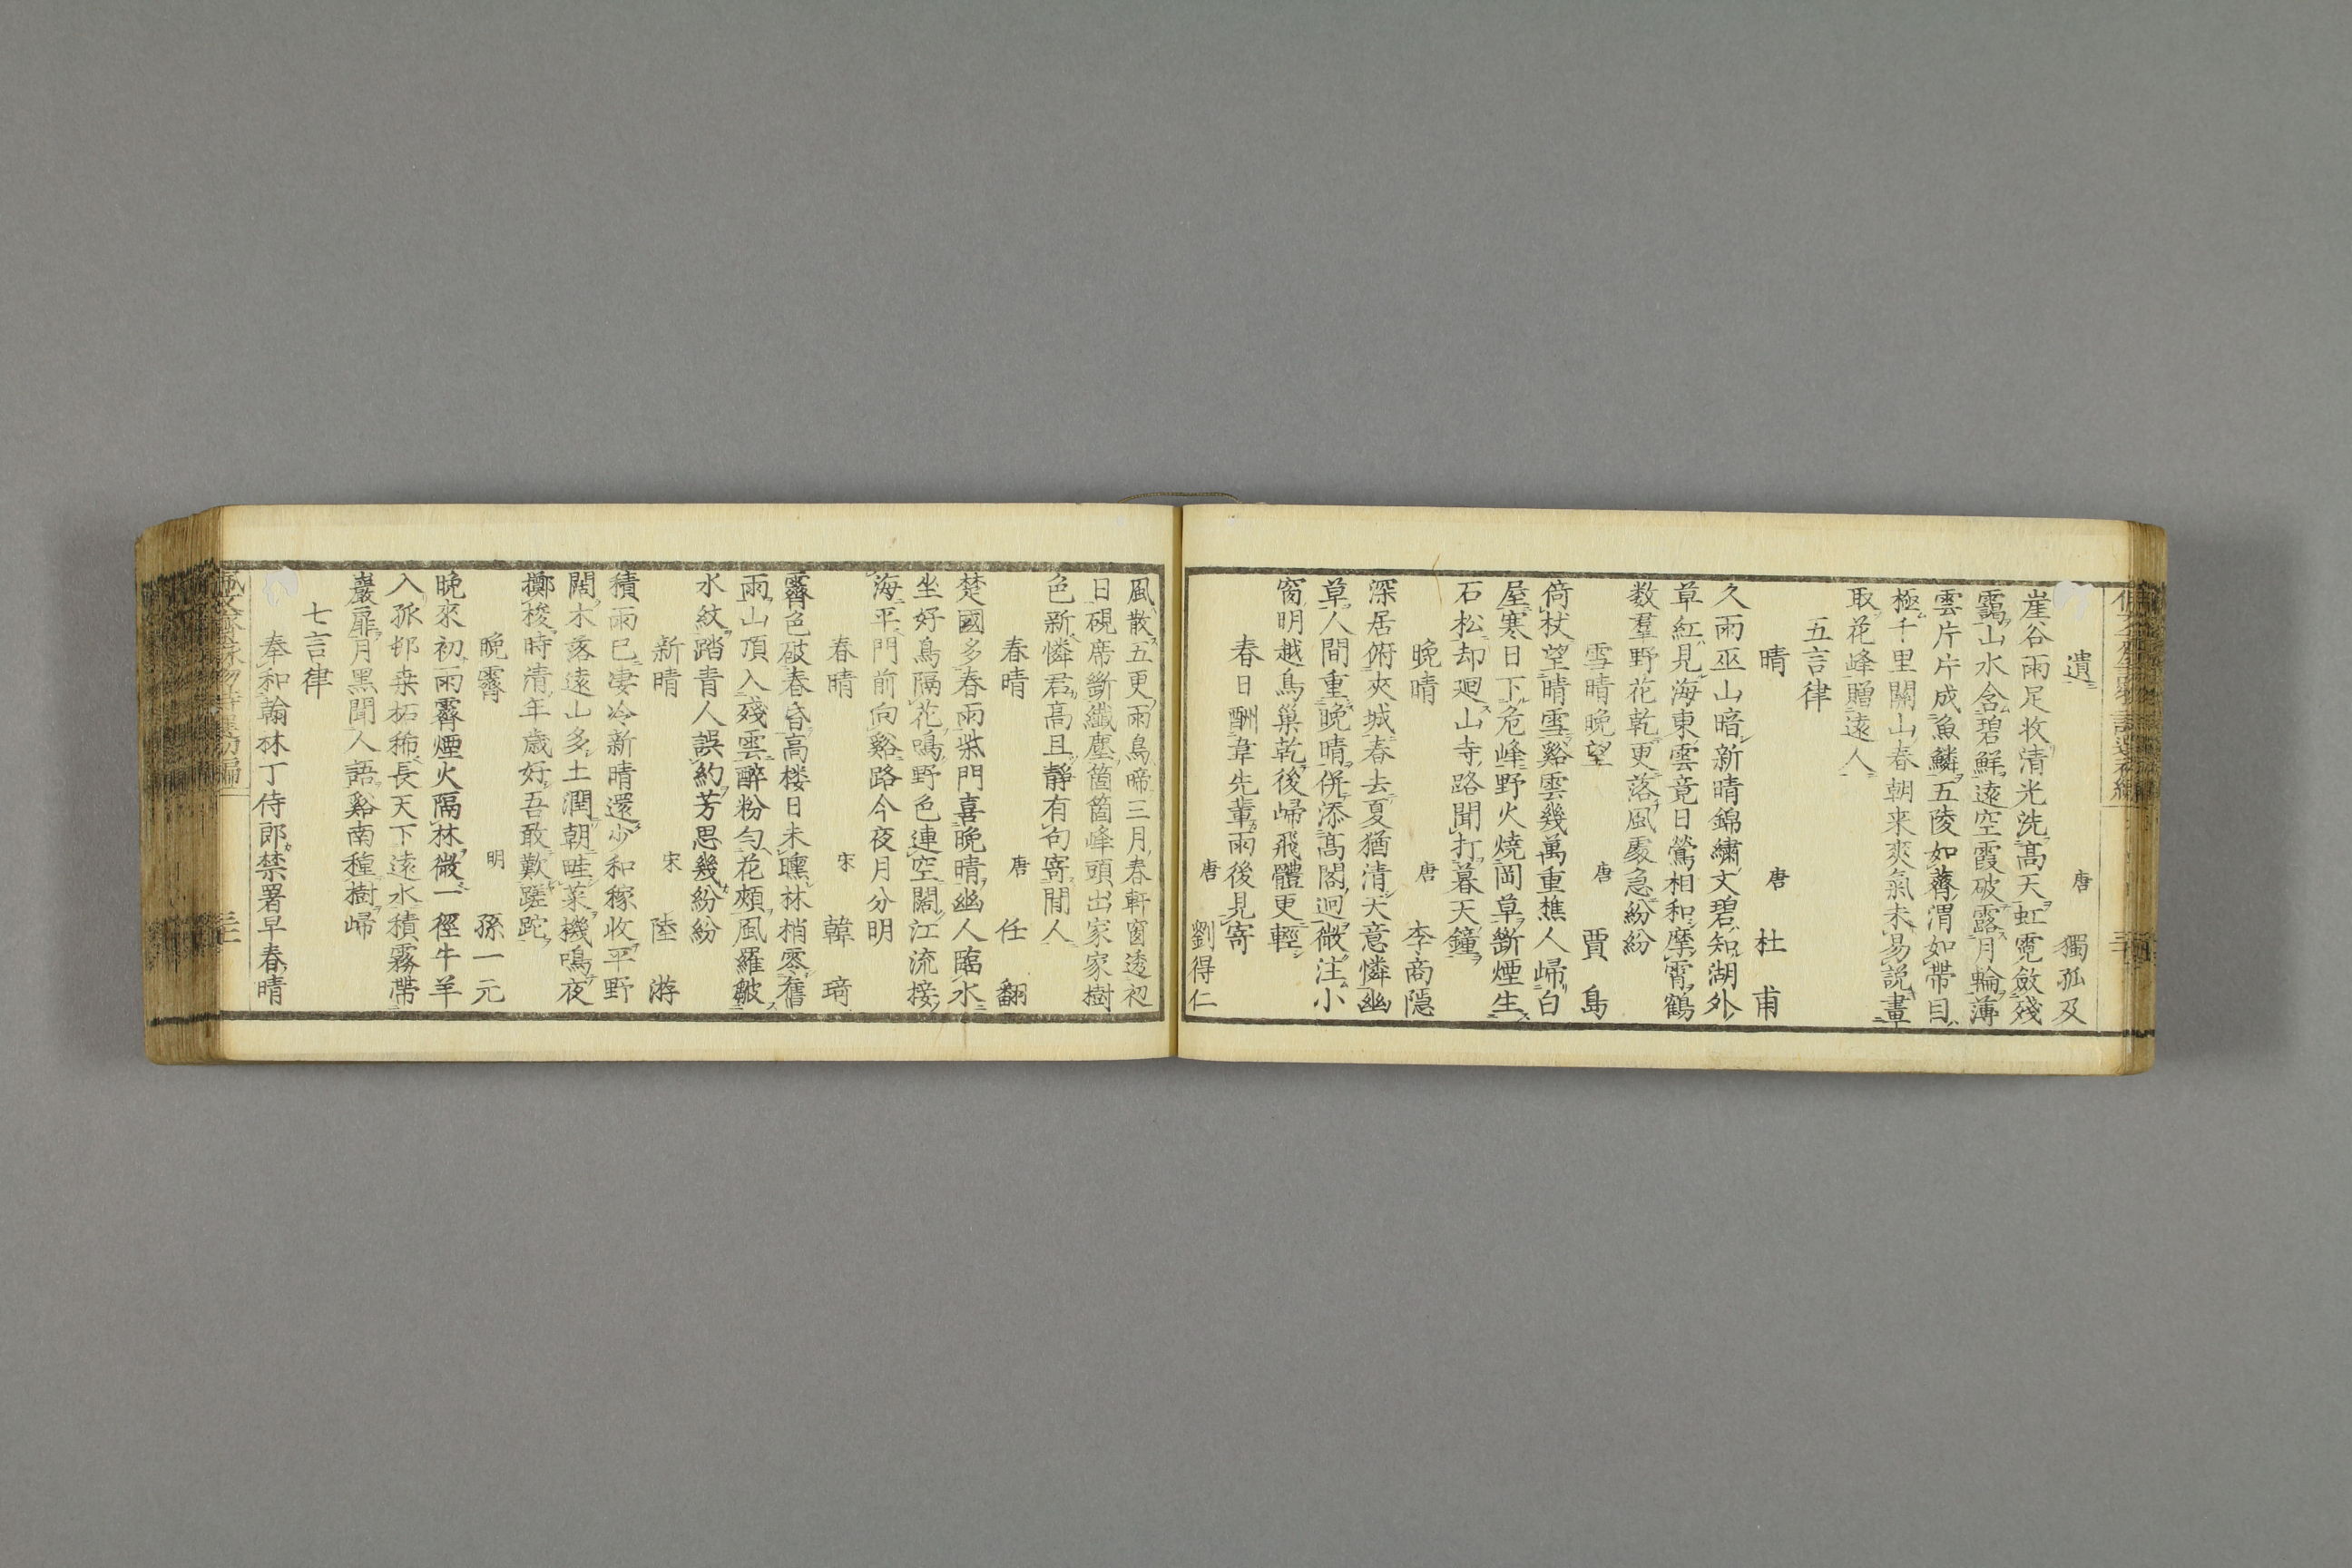 遺　唐　獨孤及
崖谷雨足收清光洗高天虹霓斂殘
靄山水含碧鮮遠空霞破露月輪薄
雲片片成魚鱗五陵如薺渭如帶目
極千里關山春朝来爽氣未易説畫
取花峰贈遠人
五言律
晴　唐　杜甫
久雨巫山暗新晴錦繡文碧知湖外
草紅見海東雲竟日鶯相和摩霄鶴
数羣野花乾更落風處急紛紛
雪晴晩望　唐　賈島
倚杖望晴雪谿雲幾萬重樵人歸白
屋寒日下危峰野火燒岡草斷煙生
石松却廻山寺路聞打暮天鐘
晩晴　唐　李商隱
深居俯夾城春去夏猶清天意憐幽
草人間重晩晴併添髙閣迥微注小
窗明越鳥巢乾後歸飛體更輕
春日酬韋先輩雨後見寄
唐　劉得仁
風散五更雨鳥啼三月春軒窗透初
日硯席斷纖塵箇箇峰頭出家家樹
色新憐君髙且靜有句寄閒人
春晴　唐　任翻
楚國多春雨柴門喜晩晴幽人臨水
坐好鳥隔花鳴野色連空闊江流接
海平門前向谿路今夜月分明
春晴　宋　韓琦
霽色破春昏高楼日未曛林梢零舊
雨山頂入殘雲醉粉勻花頰風羅皺
水紋踏青人誤約芳思幾紛紛
新晴　宋　陸游
積雨已凄冷新晴還少和稼收平野
闊木落遠山多土潤朝畦菜機鳴夜
擲梭時清年歳好吾敢歎蹉跎
晩霽　明　孫一元
晩來初雨霽煙火隔林微一徑牛羊
入孤邨桒柘稀長天下遠水積霧帶
巖扉月黑聞人語谿南種樹歸
七言律
奉和翰林丁侍郎禁署早春晴